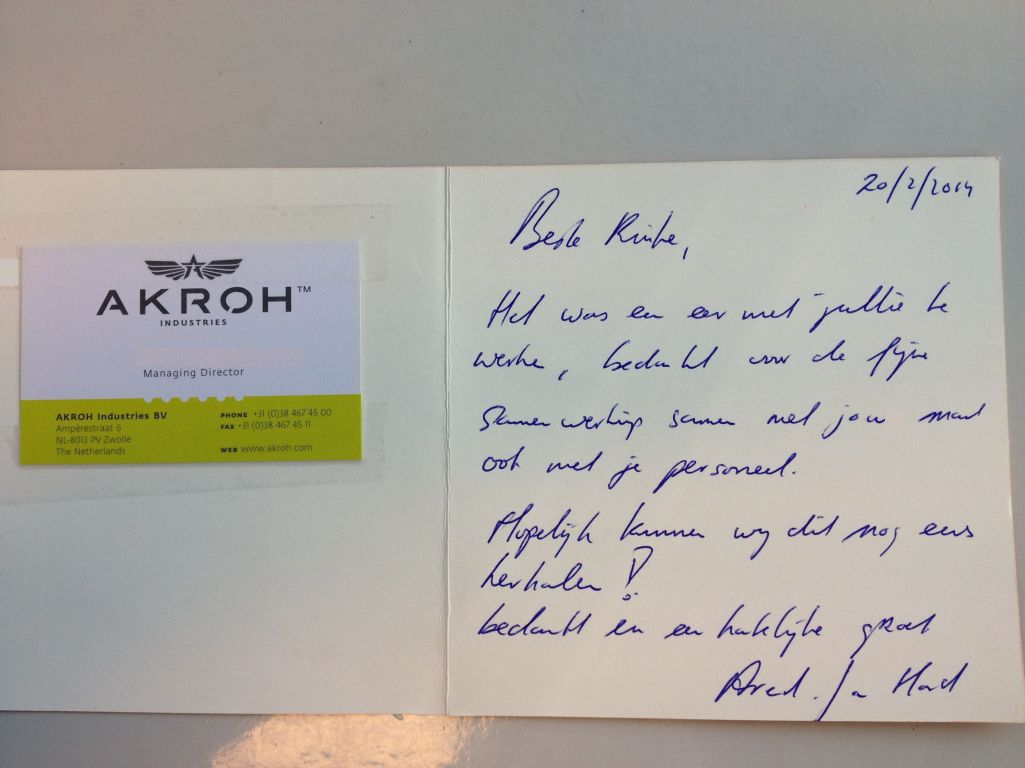 AKROH™
INDUSTRIES
Managing Director
AKROH Industries BV
Ampèrestraat 6
NL-8013 PV Zwolle
The Netherlands
PHONE +31 (0)38 467 45 00
FAX +31 (0)38 467 45 11
WEB www.akroh.com
20/2/2014
Beste
Het was een eer met jullie te
werken, bedankt voor de fijne
samenwerking samen met jou maar
ook met je personeel.
Mogelijk kunnen wij dit nog eens
herhalen!
bedankt en een hartelijke groet